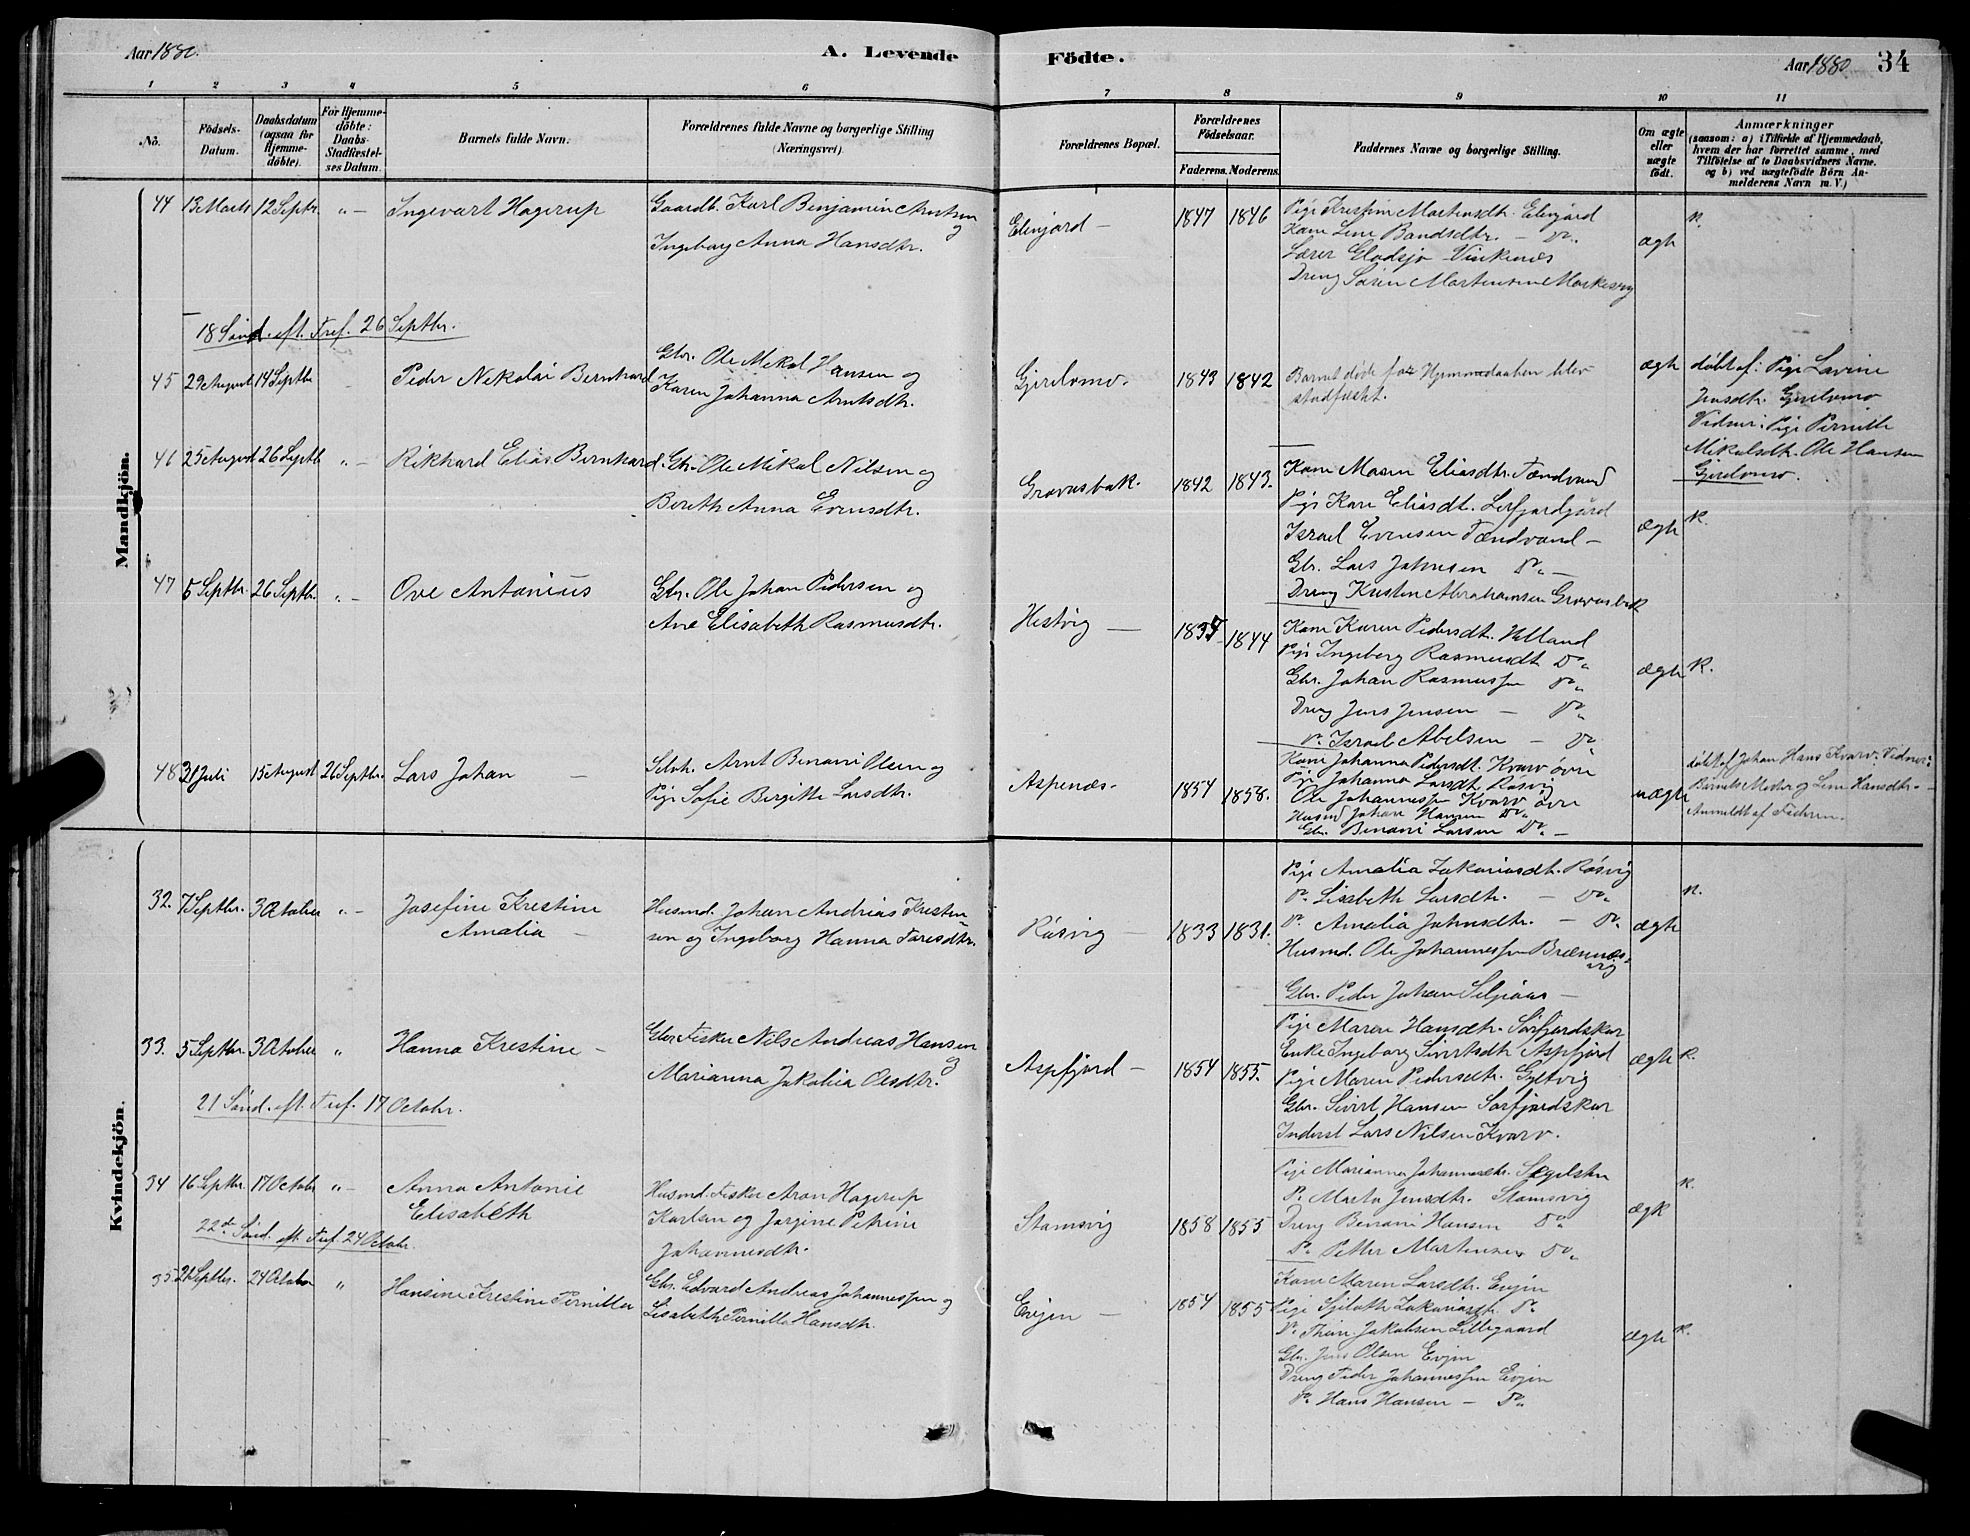 Aar 1880.
A. Levende
Födte.
Aar 1880
34
1 2 3 4 5 6 7 8 9 10 11
No.
Födsels-Datum.
Daabsdatum (ogsaa for Hjemme-döbte).
For Hjemme-döbte: Daabs-Stadfæstel-ses Datum.
Barnets fulde Navn.
Forældrenes fulde Navne og borgerlige Stilling (Næringsvei).
Forældrenes Bopæl.
Forældrenes Födselsaar.
Faderens. Moderens.
Faddernes Navne og borgerlige Stilling.
Om ægte eller uægte födt.
Anmærkninger
(saasom: a) i Tilfælde af Hjemmedaab, hvem der har forrettet samme, med Tilföielse af to Daabsvidners Navne, og b) ved uægtefödte Börn An-melderens Navn m. V.)
Mandkjön.
44 13 Marts 12 Septbr. " – Ingevart Hagerup
Gaardb. Karl Benjamin Arntsen og
Ingeborg Anna Hansdtr.
Elvejord – 1847 1846
Pige Krestine Martensdtr. Elvejord
Kone Lene Bandsdtr. – Do.
Lærer Gladsjø Vinkenes
Dreng Søren Martensen Markesvig
ægte
K.
18 Sønd. eft. Tref. 26 Septbr.
45 29 August 14 Septbr Peder Nikolai Bernhard
Gbr. Ole Mikal Hansen og
Karen Johanna Arntsdtr.
Gjerdomo. 1843 1842
Barnet døde før Hjemmedaaben blev
stadfæstet.
ægte
døbt af: Pige Lavine
Jensdtr. Gjerdomo
Vidner: Pige Pernille
Mikalsdtr. Ole Hansen
Gjerdomo.
46 25 August 26 Septbr " – Rikhard Elias Bernhard.
Gbr. Ole Mikal Nilsen og
Bereth Anna Evensdtr.
Gravasbak. 1842 1843.
Kone Maren Eliasdtr. Tændvand
Pige Karen Eliasdt. Leifjordgård
Israel Evensen Tændvand –
Gbr. Lars Johnsen Do. –
Dreng Kristen Abrahamsen Gravasbak
ægte
K.
47 5 Septbr. 26 Septbr. " – Ove Antonius
Gbr. Ole Johan Pedersen og
Ane Elisabeth Rasmusdtr.
Hestvig – 1837 1844
Kone Karen Pedersdt. Valland
Pige Ingeborg Rasmusdt. Do.
Gbr. Johan Rasmussen Do.
Dreng Jens Jensen – Do.
Do. Israel Abelsen – Do.
ægte
K.
48 31 Juli 15 August 26 Septbr. Lars Johan –
Selvh. Arnt Benoni Olsen og
Pige Sofie Birgitte Larsdtr.
Aspenæs. 1854 1858.
Kone Johanna Pedersdt. Kvarv øvre
Pige Johanna Larsdt. Røsvig
Ole Johannessen Kvarv øvre
Husmd Johan Hansen Do.
Gbr. Benoni Larsen Do. –
uægte
døbt af Johan Hans Kvarv. Vidner:
Barnets Moder og Lene Hansdtr. –
Anmeldt af Faderen.
Kvindekjön.
32. 7 Septbr. 3 October " – Josefine Krestine
Amalia –
Husmd. Johan Andreas Kresten-
sen og Ingeborg Hanna Taresdtr.
Røsvig – 1833 1831.
Pige Amalia Zakariasdt. Røsvig
Do. Lisabeth Larsdtr. – Do.
Do. Amalia Johnsdtr. – Do.
Husmd. Ole Johannessen Brænnæs-
vig
Gbr. Peder Johan Seljeaas –
ægte
K.
33. 5 Septbr. 3 October " Hanna Krestine –
Gbr. Fisker Nils Andreas Hansen og
Marianna Jakobia Olsdtr.
Aspfjord – 1854 1855.
Pige Maren Hansdtr. Sørfjordskar
Enke Ingeborg Sivertsdtr Aspfjord
Pige Maren Pedersdtr. Gyltvig
Gbr. Sivert Hansen Sørfjordskar
Inderst Lars Nilsen Kvarv.
ægte
K.
21 Sønd. eft. Tref. 17 Octobr.
34 16 Septbr. 17 Octobr " – Anna Antonie
Elisabeth
Husmd. Fisker Aron Hagerup
Karlsen og Jørgine Petrine
Johannesdtr.
Stamsvig 1858 1855
Pige Marianna Johannesdtr. Sægelsten
P. Marta Jensdtr. Stamsvig
Dreng Benoni Hansen Do.
Do. Petter Martensen Do.
ægte
K.
22de Sønd. eft. Tref. 24 Octobr.
35. 21 Septbr. 24 October " Hansine Krestine Pernilla
Gbr. Edvard Andreas Johannessen og
Lisabeth Pernilla Hansdtr.
Evjen – 1854 1855
Kone Maren Larsdtr. Evjen
Pige Zakariasdtr. Do.
Do. Thine Jakobsen Lillegaard
Gbr. Jens Olsen Evjen
Dreng Peder Johannessen Evjen
Do. Hans Hansen – Do.
ægte
K.